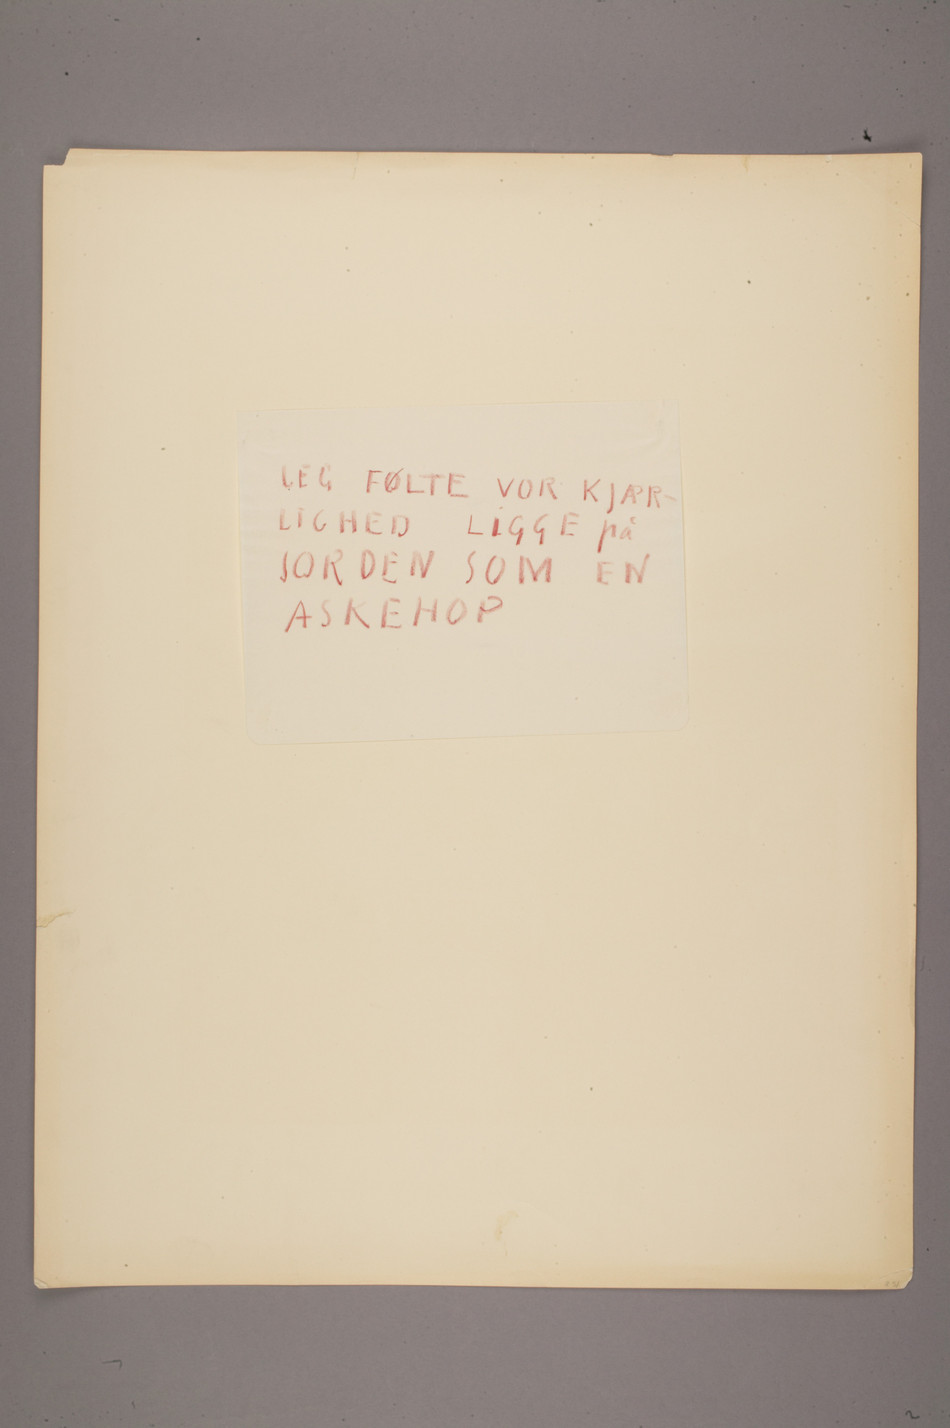 JEG FØLTE VOR KJÆR-
LIGHED LIGGE på
JORDEN SOM EN
ASKEHOP